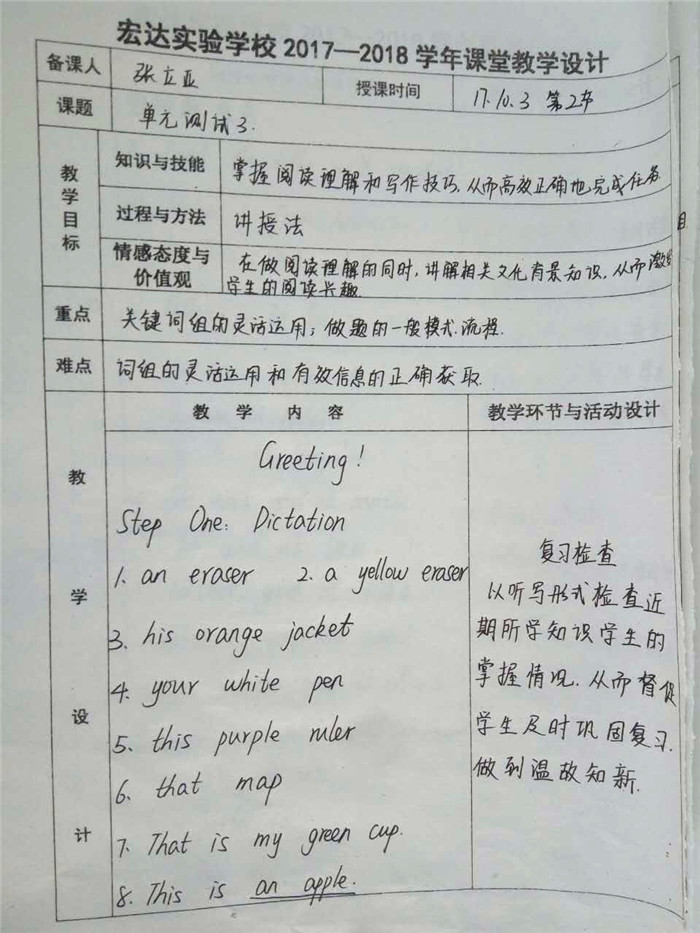 宏达实验学校 2017—2018 学年课堂教学设计
备课人 张立亚 授课时间 17.10.3 第2节
课题 单元测试3.
教学目标
知识与技能 掌握阅读理解和写作技巧,从而高效正确地完成任务.
过程与方法 讲授法
情感态度与价值观 在做阅读理解的同时,讲解相关文化背景知识,从而激发
学生的阅读兴趣.
重点 关键词组的灵活运用;做题的一般模式.流程.
难点 词组的灵活运用和有效信息的正确获取.
教学设计
教 学 内 容 教学环节与活动设计
Greeting!
Step One: Dictation
1. an eraser 2. a yellow eraser
3. his orange jacket
4. your white pen
5. this purple ruler
6. that map
7. That is my green cup.
8. This is an apple.
复习检查
以听写形式检查近
期所学知识学生的
掌握情况.从而督促
学生及时巩固复习.
做到温故知新.
目